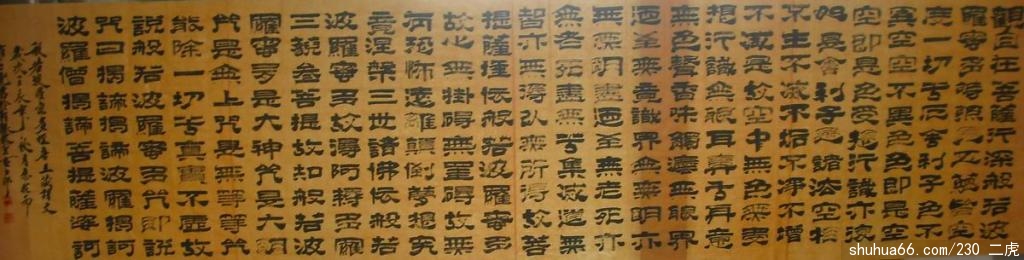 觀自在菩薩行深般若波
羅蜜多時照見五蘊皆空
度一切苦厄舍利子色不
異空空不異色色即是空
空即是色受想行識亦復
如是舍利子是諸法空相
不生不滅不垢不淨不增
不減是故空中無色無受
想行識無眼耳鼻舌身意
無色聲香味觸法無眼界
乃至無意識界無無明亦
無無明盡乃至無老死亦
無老死盡無苦集滅道無
智亦無得以無所得故菩
提薩埵依般若波羅蜜多
故心無掛礙無罣礙故無
有恐怖遠離顛倒夢想究
竟涅槃三世諸佛依般若
波羅蜜多故得阿耨多羅
三藐叁菩提故知般若波
羅蜜多是大神咒是大明
咒是無上咒是無等等咒
能除一切苦真實不虛故
說般若波羅蜜多咒即說
咒曰揭諦揭諦波羅揭諦
波羅僧揭諦菩提薩婆訶
shuhua66.com/230 二虎